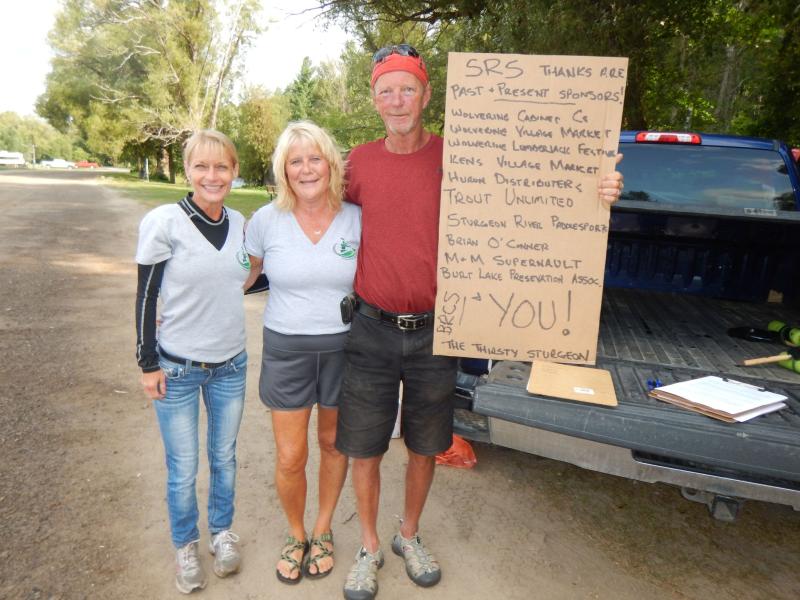 SRS THANKS ARE
PAST + PRESENT SPONSORS!
WOLVERINE CABINET CO
WOLVERINE VILLAGE MARKET
WOLVERINE LUMBERJACK FESTIVAL
KENS VILLAGE MARKET
HURON DISTRIBUTERS
TROUT UNLIMITED
STURGEON RIVER PADDLESPORTS
BRIAN O'CONNER
M+M SUPERNAULT
BURT LAKE PRESEVATION ASSOC.
BRCS
1+ YOU!
THE THIRSTY STURGEON